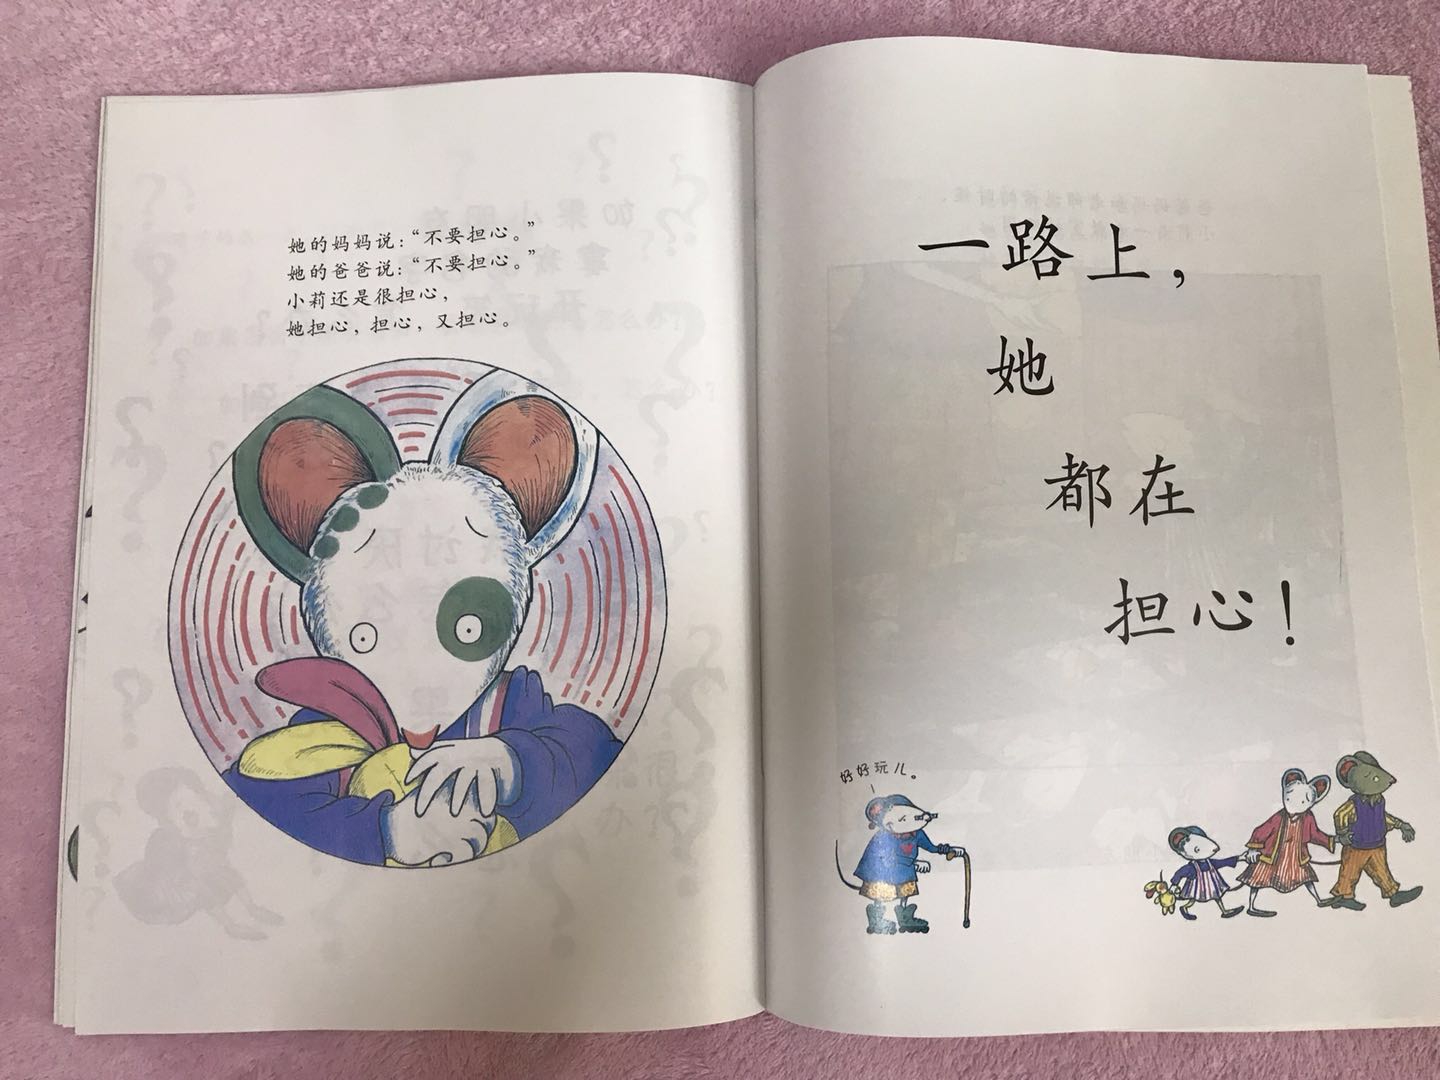 她的妈妈说：“不要担心。”
她的爸爸说：“不要担心。”
小莉还是很担心，
她担心，担心，又担心。
一路上，
她
都在
担心！
好好玩儿。